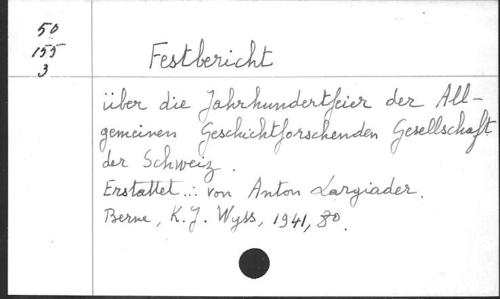 50
155
3
Festbericht
über die Jahrhundertfeier der All-
gemeinen Geschichtforschenden Gesellschaft
der Schweiz.
Erstattet... von Anton Largiader.
Berne, K.J. Wyss, 1941, 80.